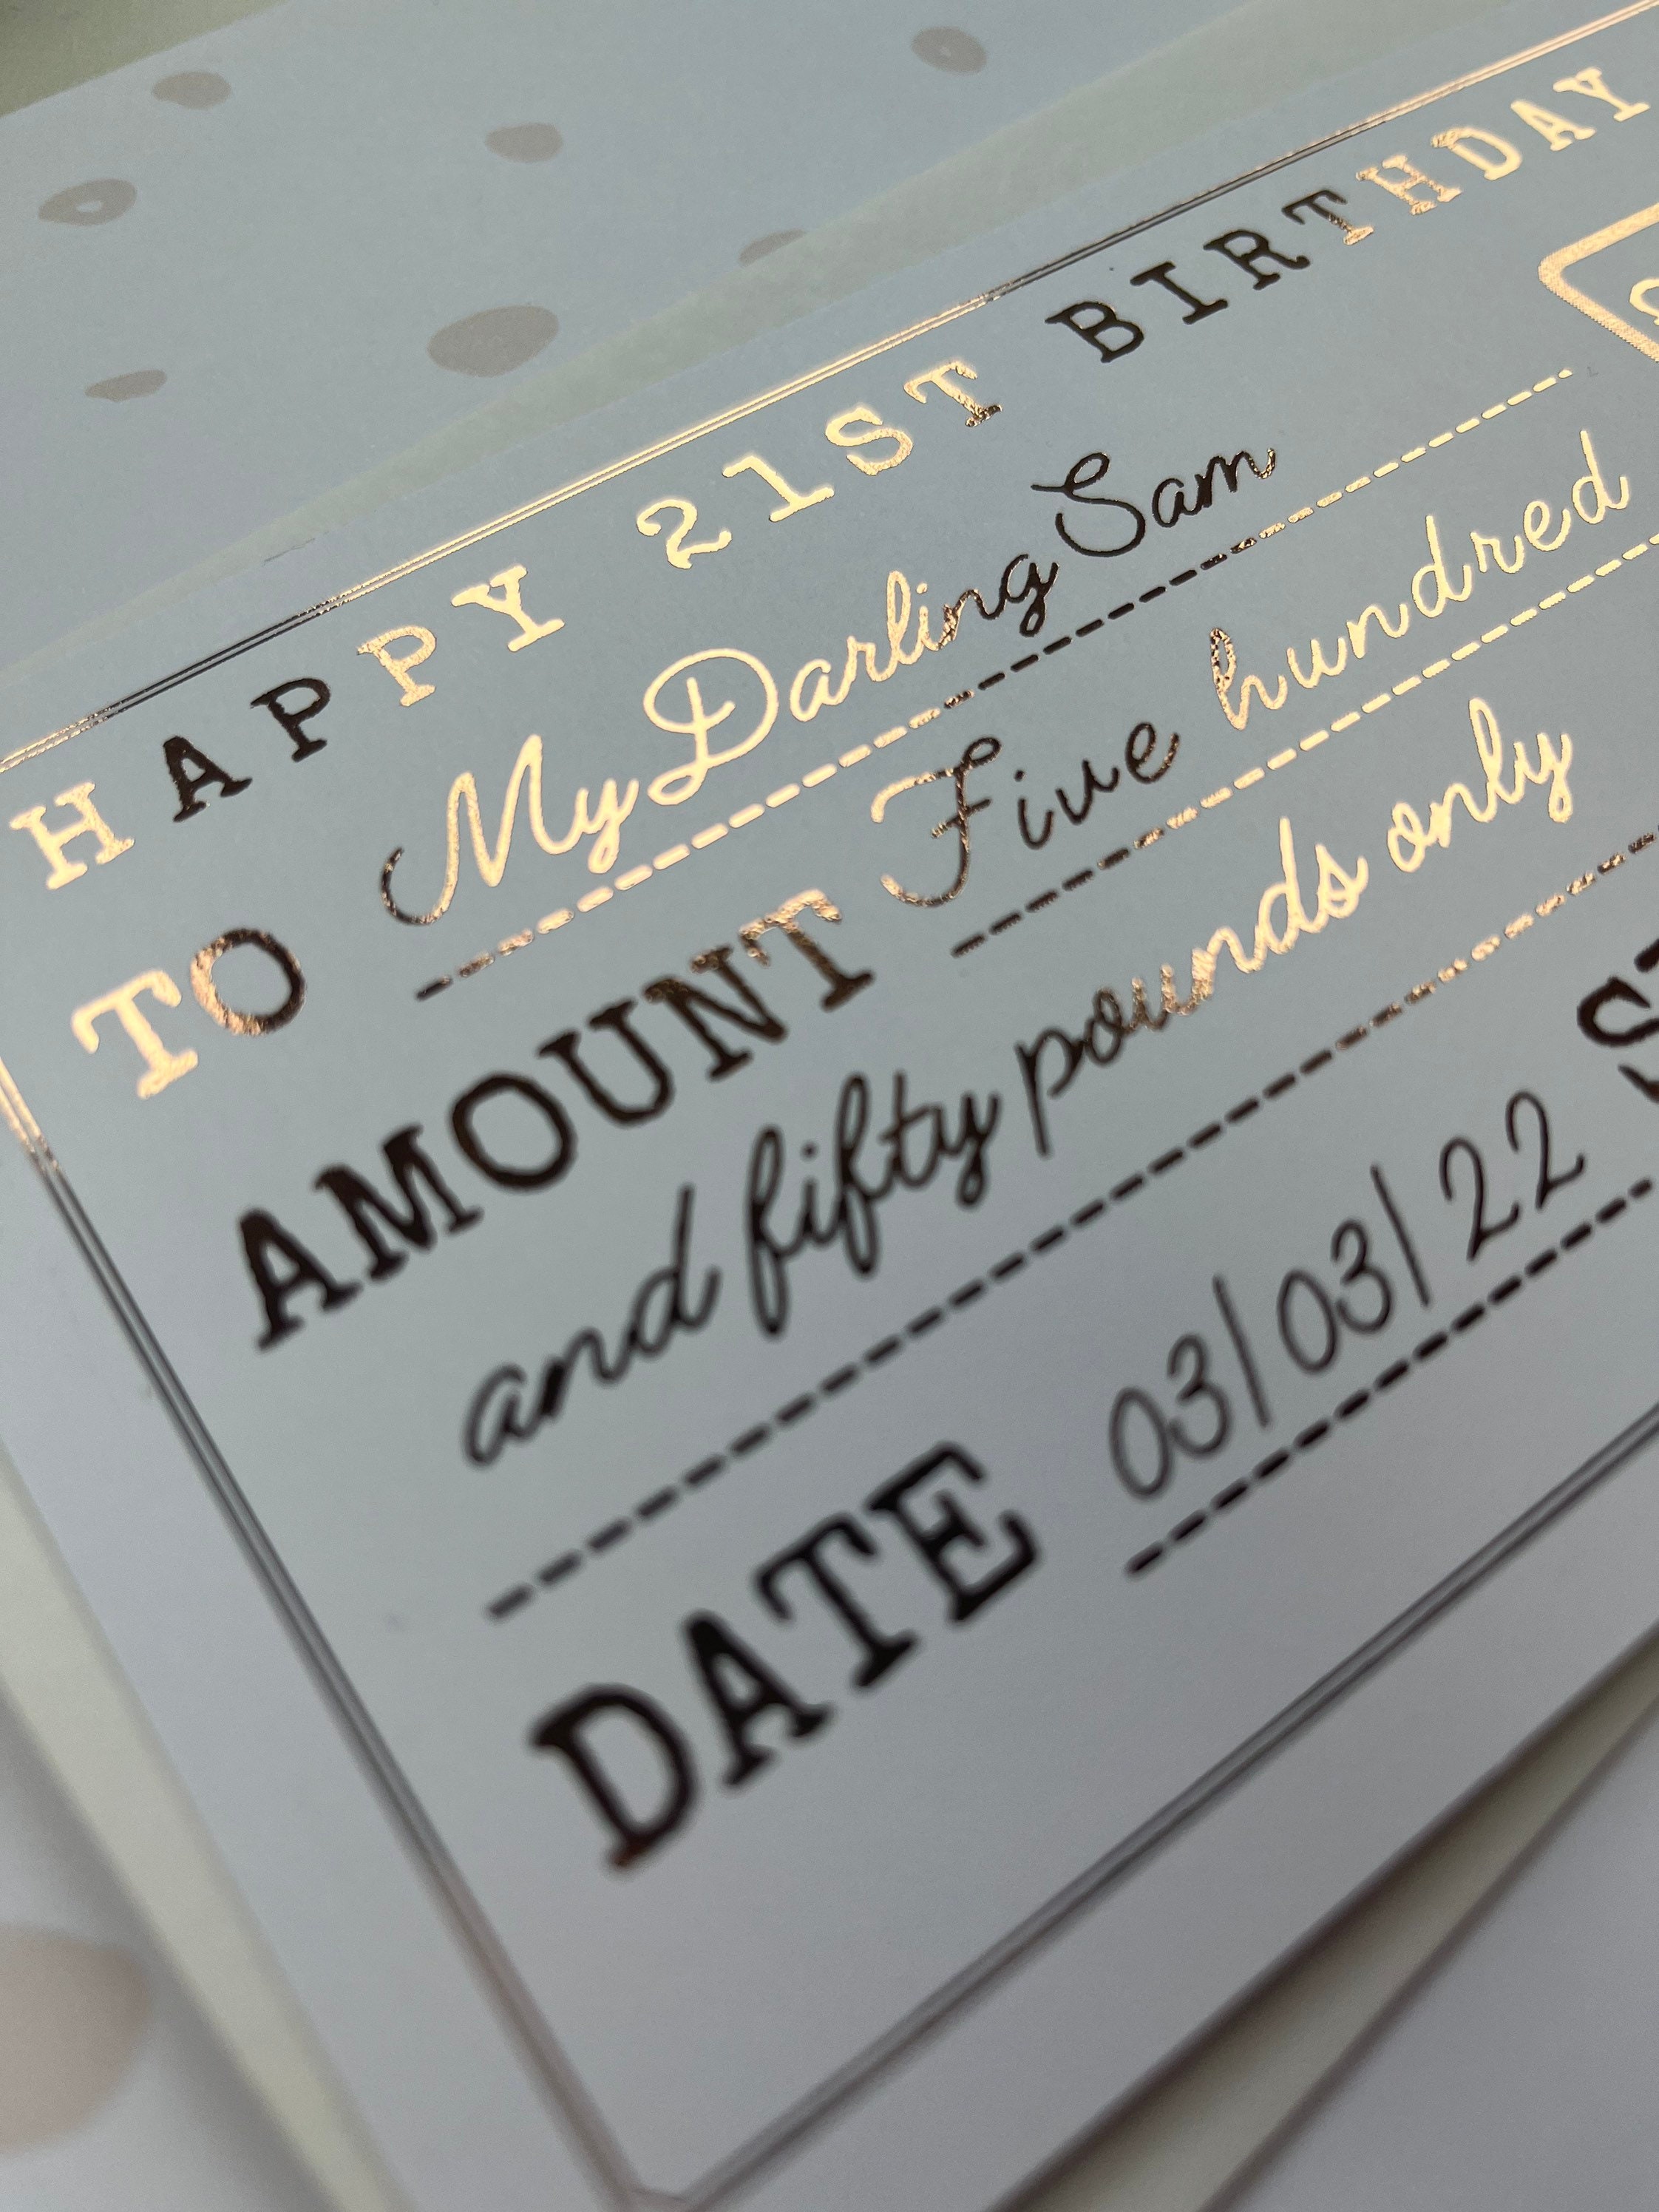 HAPPY 21ST BIRTHDAY
TO My Darling Sam
AMOUNT Five hundred
and fifty pounds only
DATE 03/03/22